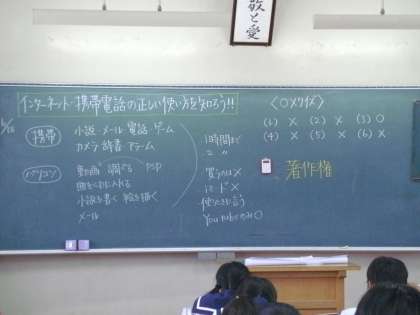 敬と愛
インターネット・携帯電話の正しい使い方を知ろう!!
携帯
小説・メール 電話 ゲーム
カメラ 辞書 アラーム
パソコン
動画 調べる PSP
曲を入れる
小説を書く 絵を描く
メール
1時間まで
2 〃
買うのは×
使ったら言う
YouTubeのみ○
〈○×クイズ〉
(1) × (2) × (3) ○
(4) × (5) × (6) ×
著作権